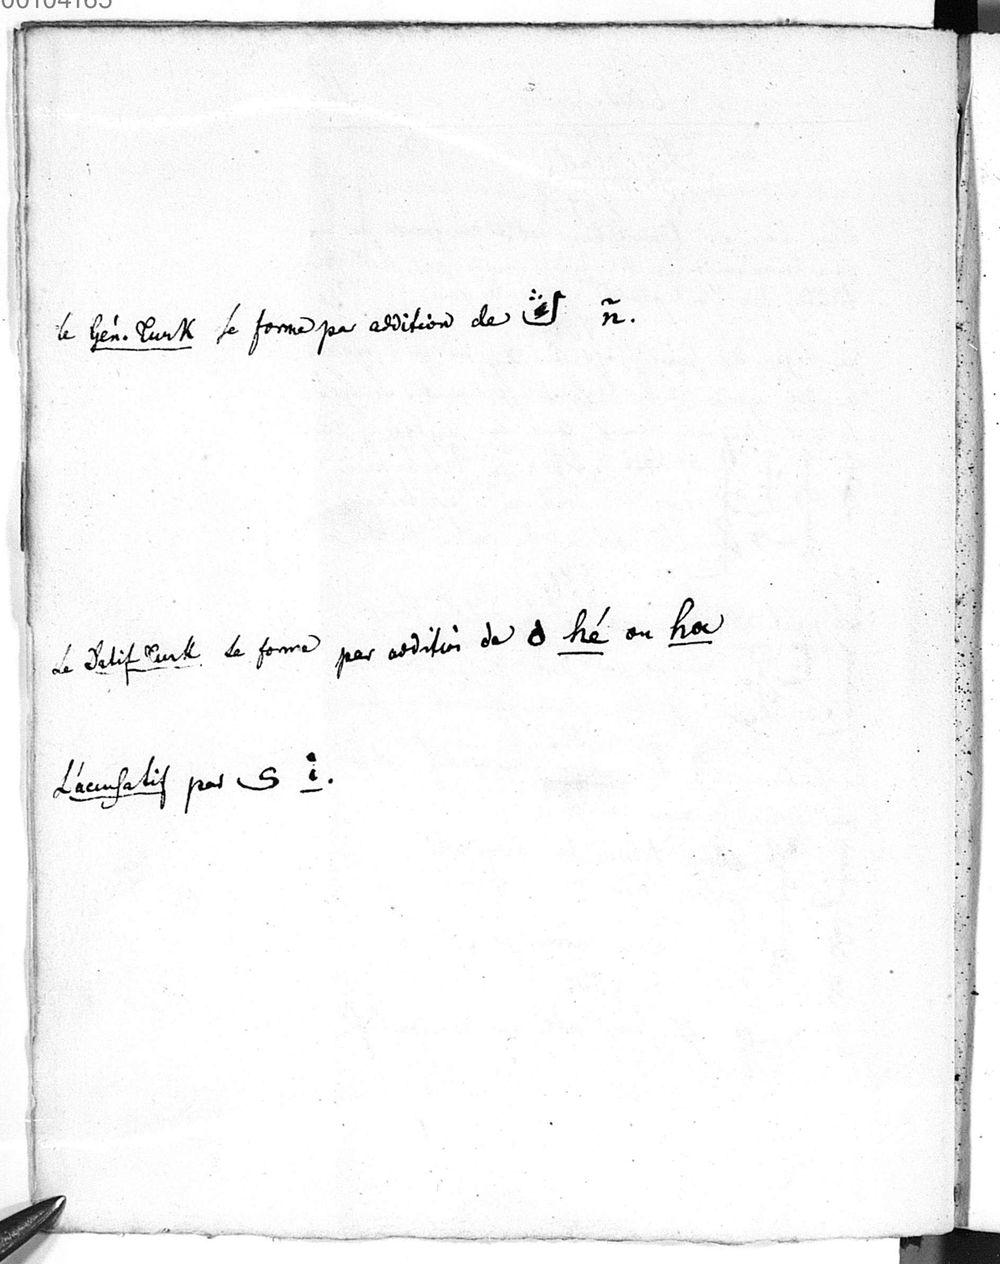 00104165
le Gén. Turk se forme par addition de ڭ ñ.
Le Datif Turk se forme par addition de ه hé ou ha
L'acusatif par ى i.